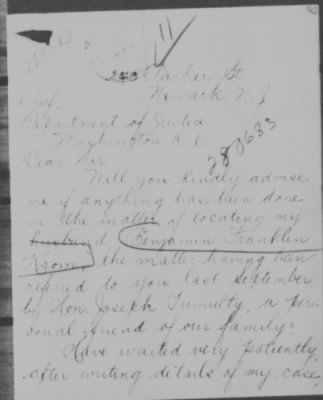 11
Parker St
Newark N.J.
Chief,
Department of Justice
Washington D.C.
280633
Dear Sir:
Will you kindly advise
me if anything has been done
in the matter of locating my
husband Benjamin Franklin
Krom, the matter having been
referred to you last September
by Hon. Joseph Tumulty, a per-
sonal friend of our family?
Have waited very patiently
after writing details of my case,